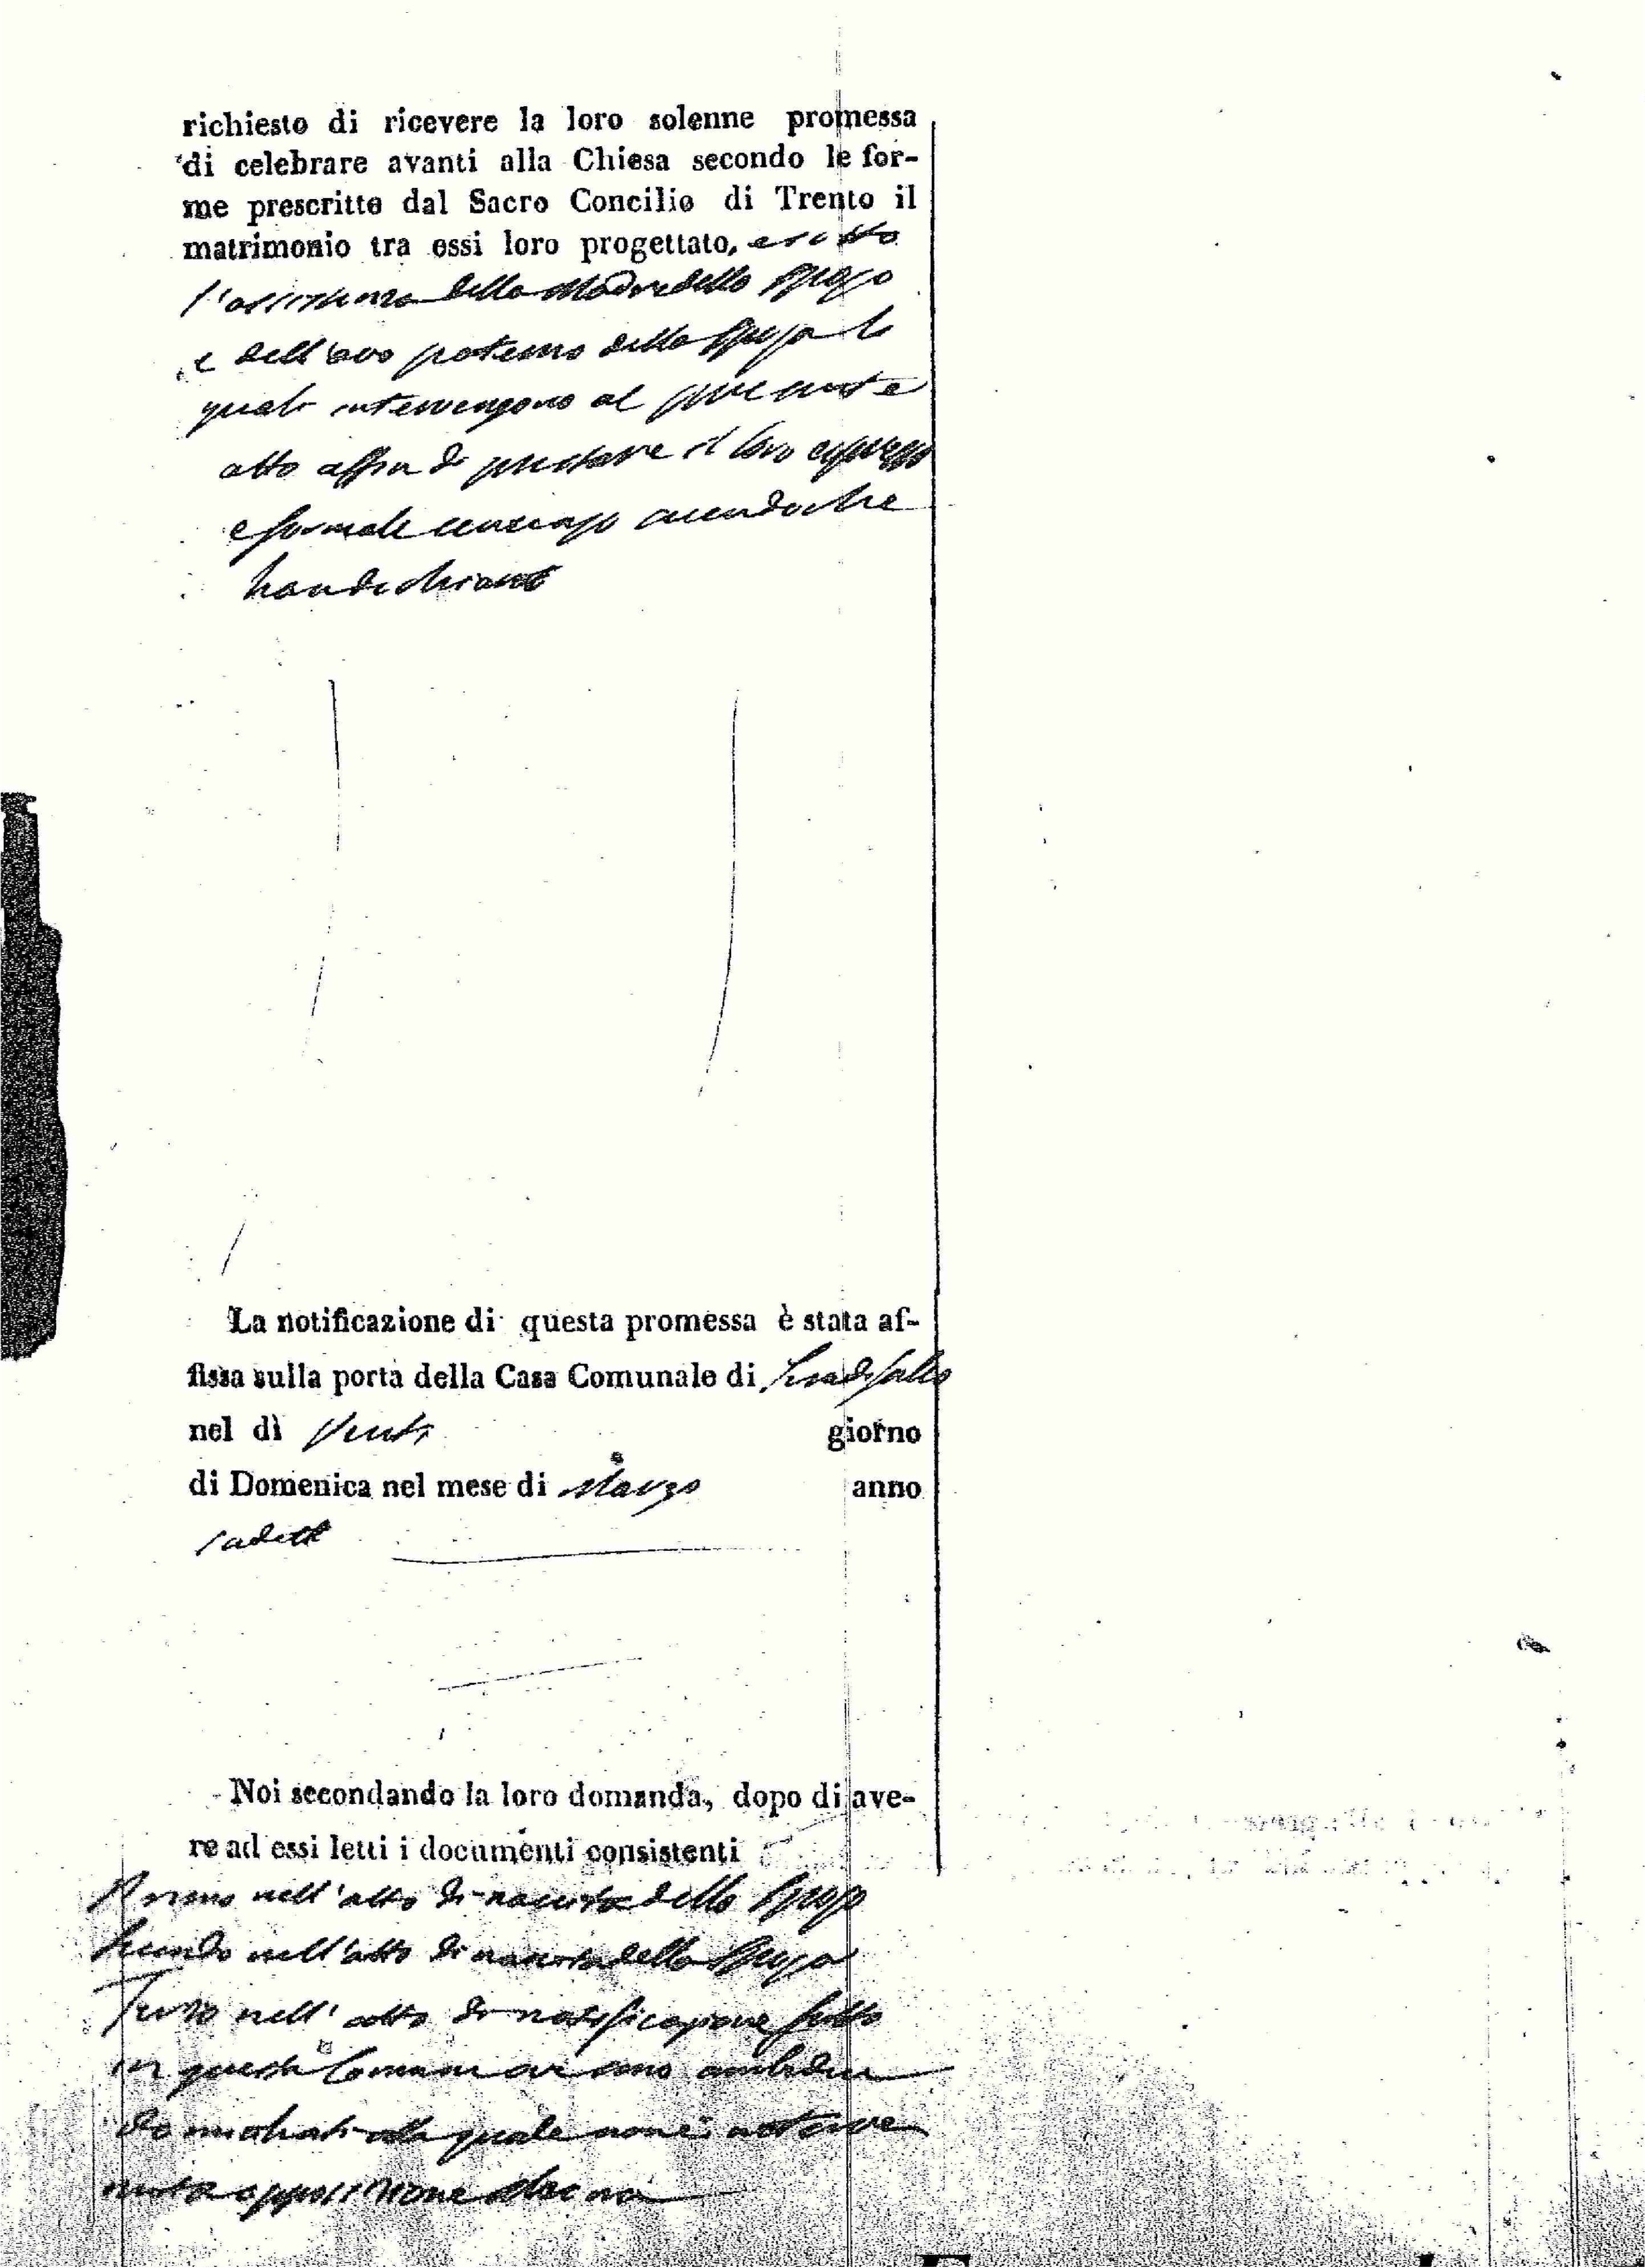 richiesto di ricevere la loro solenne promessa
di celebrare avanti alla Chiesa secondo le for-
me prescritte dal Sacro Concilio di Trento il
matrimonio tra essi loro progettato, 
l'assistenza della Madre dello Sposo
e dell'avo paterno della Sposa le
quali intervengono al presente
atto affin di prestare il loro espresso
e formale consenso
han dichiarato
La notificazione di questa promessa è stata af-
fissa sulla porta della Casa Comunale di
nel dì Venti giorno
di Domenica nel mese di Marzo anno
sadetto
Noi secondando la loro domanda, dopo di ave-
re ad essi letti i documenti consistenti
Primo nell'atto di nascita dello Sposo
Secondo nell'atto di nascita della Sposa
Terzo nell'atto di notificazione fatto
in questa Comune ove sono ambedue
domiciliati alla quale non è interve
nuta opposizione alcuna